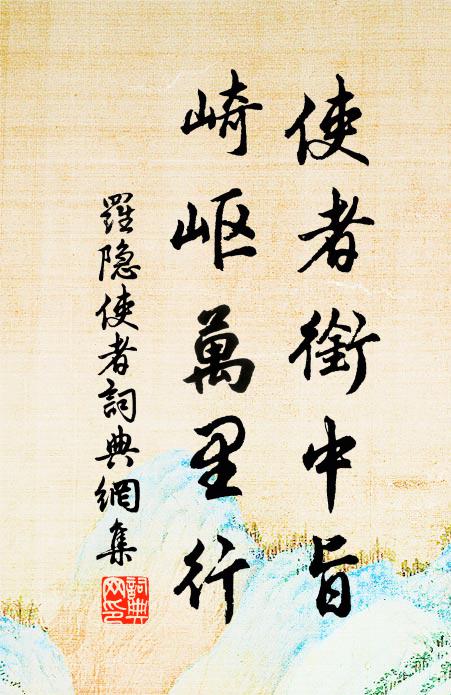 使者銜中旨
崎岖萬里行
羅隐使者詞典網集
詞典网印